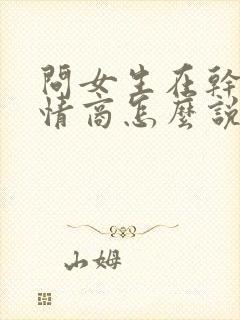 問女生在幹
情商怎麼説
山姆